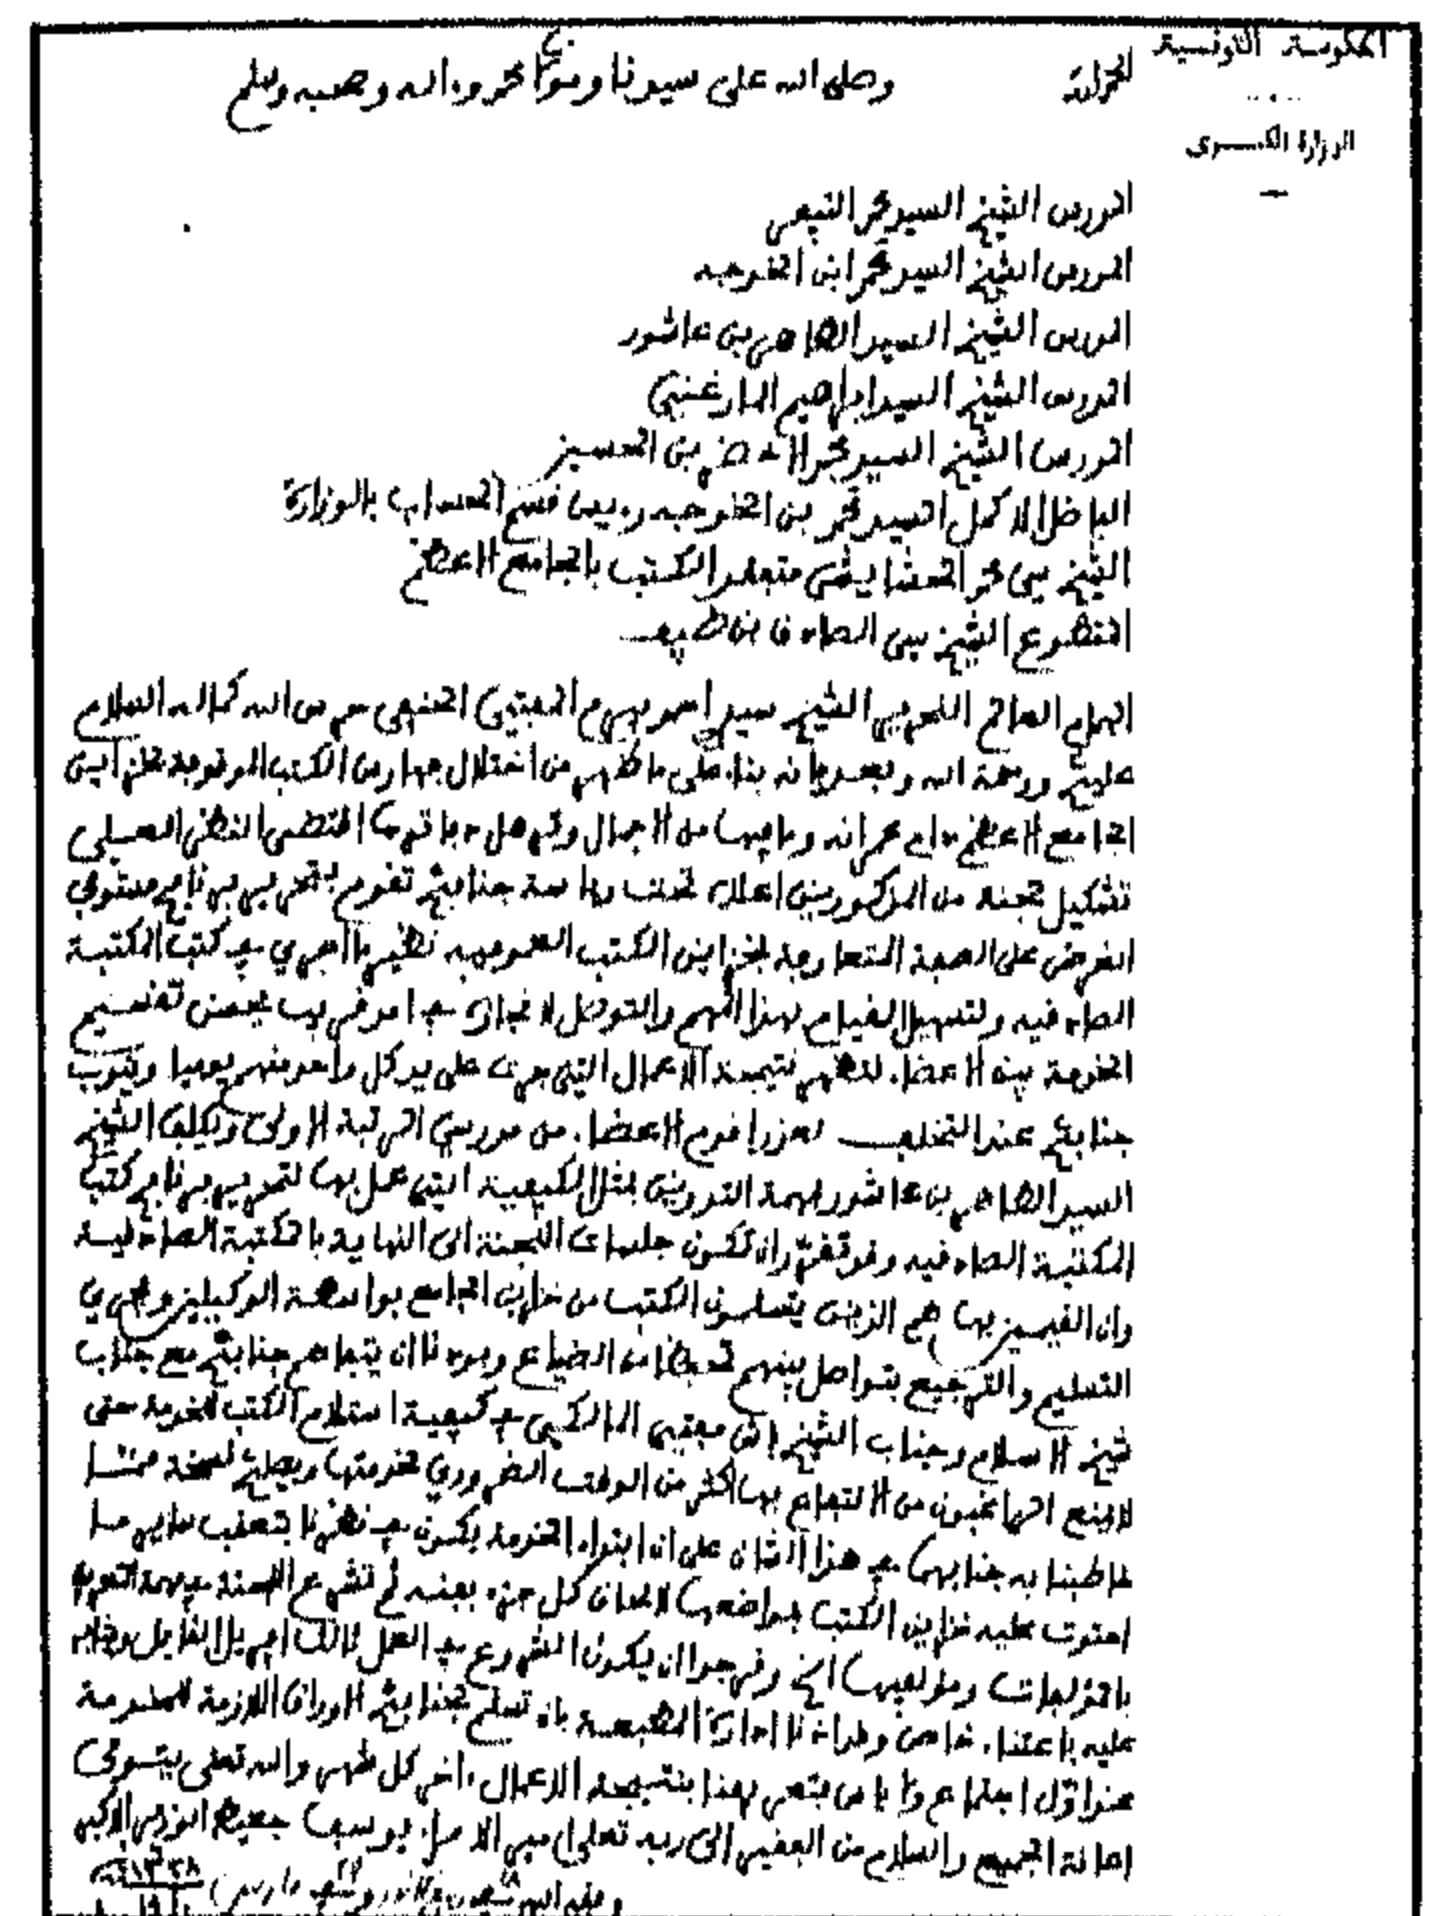 الحكومة التونسية
الوزارة الكبرى
الحمد لله
وصلى الله على سيدنا ومولانا محمد وءاله وصحبه وسلم
المدرس الشيخ السيد محمد النيفر
المدرس الشيخ السيد محمد ابن الخوجه
المدرس الشيخ السيد الطاهر بن عاشور
المدرس الشيخ السيد ابراهيم المارغني
المدرس الشيخ السيد محمد الاخضر بن الحسين
الفاضل الاكمل السيد محمد بن الخوجه رءيس قسم الحساب بالوزارة
الشيخ سي محمد الحشايشي متفقد الكتب بالجامع الاعظم
المتطوع الشيخ سي الصادق بن
الهمام العالم النحرير الشيخ سيدي احمد بيرم المفتي الحنفي حرس الله كماله السلام
عليكم ورحمة الله وبعد فانه بناء على ما ظهر من اختلال فهارس الكتب الموقوفة بخزاين
الجامع الاعظم دام عمرانه وما فيها من الاجمال وقرب دفاترها اقتضى النظر العلي
تشكيل لجنة من المذكورين اعلاه تحت رءاسة جنابكم تقوم بتحرير برنامج مستوفي
الغرض على الصفة المتعارفة بخزاين الكتب العمومية نظير ما اجري في كتب المكتبة
الصادقية ولتسهيل القيام بهذا المهم والتوصل لانجازه في امد قريب يحسن تقسيم
الخدمة بين الاعضاء لتظهر نتيجة الاعمال التي جرت على يد كل واحد منهم يوميا وينوب
جنابكم عند التخلف لعذر اقدم الاعضاء من مدرسي الرتبة الاولى ويكلف الشيخ
السيد الطاهر بن عاشور بمهمة التدوين بمثل الكيفية التي عمل بها لتحرير برنامج كتب
المكتبة الصادقية وقد تقرر ان تكون جلسات اللجنة الى النهاية بالمكتبة الصادقية
وان القيمين بها هم الذين يتسلمون الكتب من خزاين الجامع بواسطة الوكيلين ويجري
التسليم والترجيع بتواصل بينهم تحفظا من الضياع وبودنا ان يتفاهم جنابكم مع جناب
شيخ الاسلام وجناب الشيخ باش مفتي المالكي في كيفية استلام الكتب للخدمة حتى
لا يمنع الراغبون من الانتفاع بها اكثر من الوقت الضروري لخدمتها ويصلكم نسخة مما
خاطبنا به جنابهما في هذا الشان على ان ابتداء الخدمة يكون في نظرنا بتعقب ساير ما
احتوت عليه خزاين الكتب بمواضعها لالحاق كل جزء بجنسه ثم تشرع اللجنة في مهمة التعريف
بالمؤلفات ومؤلفيها الخ ونرجوا ان يكون الشروع في العمل ثالث افريل القابل ونظاير
عليه باعتناء خاص وقد اذنا ادارة المطبعة بان تسلم لجنابكم الاوراق اللازمة للخدمة
عند اول اجتماع ولا باس بتعريفنا بنتيجة الاعمال ءاخر كل شهر والله تعالى يتولى
اعانة الجميع والسلام من الفقير الى ربه تعالى امير الامراء يوسف جعيط الوزير الاكبر